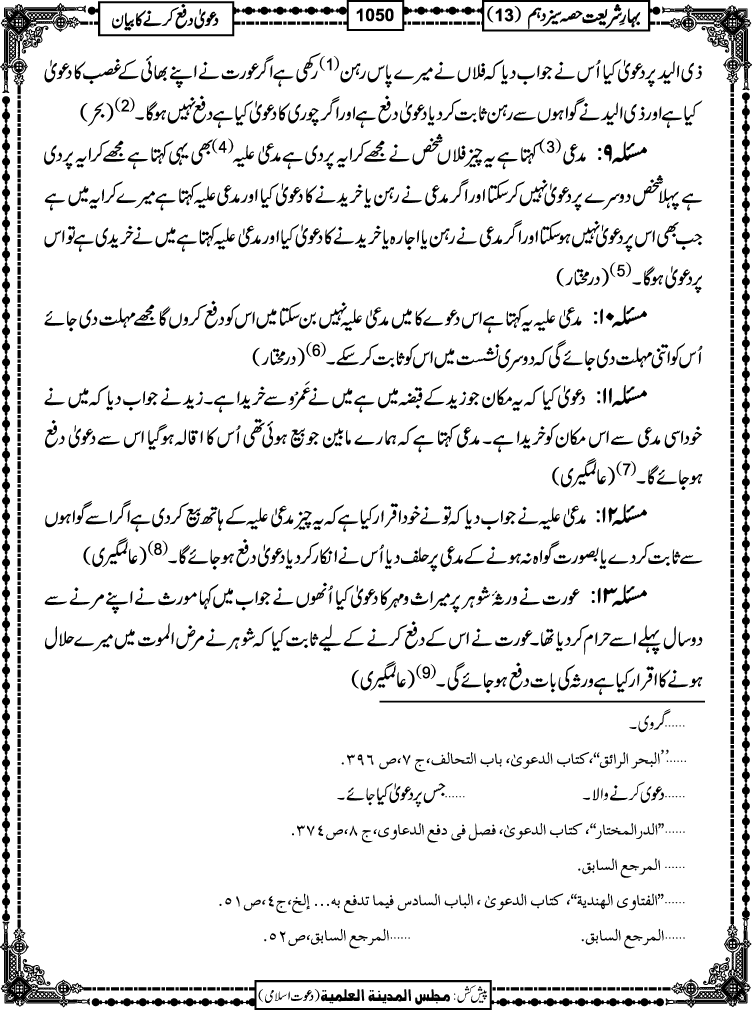 بہارِ شریعت حصہ سیزدہم (13)
1050
دعویٰ دفع کرنے کا بیان
ذی الید پر دعویٰ کیا اُس نے جواب دیا کہ فلاں نے میرے پاس رہن(1) رکھی ہے اگر عورت نے اپنے بھائی کے غصب کا دعویٰ
کیا ہے اور ذی الید نے گواہوں سے رہن ثابت کردیا دعویٰ دفع ہے اور اگر چوری کا دعویٰ کیا ہے دفع نہیں ہوگا۔(2) (بحر)
مسئلہ ۹: مدعی(3) کہتا ہے یہ چیز فلاں شخص نے مجھے کرایہ پر دی ہے مدعیٰ علیہ(4) بھی یہی کہتا ہے مجھے کرایہ پر دی
ہے پہلا شخص دوسرے پر دعویٰ نہیں کرسکتا اور اگر مدعی نے رہن یا خریدنے کا دعویٰ کیا اور مدعیٰ علیہ کہتا ہے میرے کرایہ میں ہے
جب بھی اس پر دعویٰ نہیں ہوسکتا اور اگر مدعی نے رہن یا اجارہ یا خریدنے کا دعویٰ کیا اور مدعیٰ علیہ کہتا ہے میں نے خریدی ہے تو اس
پر دعویٰ ہوگا۔(5) (درمختار)
مسئلہ ۱۰: مدعیٰ علیہ یہ کہتا ہے اس دعوے کا میں مدعیٰ علیہ نہیں بن سکتا میں اس کو دفع کروں گا مجھے مہلت دی جائے
اُس کو اتنی مہلت دی جائے گی کہ دوسری نشست میں اس کو ثابت کرسکے۔(6) (درمختار)
مسئلہ ۱۱: دعویٰ کیا کہ یہ مکان جو زید کے قبضہ میں ہے میں نے عَمْرْو سے خریدا ہے۔ زید نے جواب دیا کہ میں نے
خود اسی مدعی سے اس مکان کو خریدا ہے۔ مدعی کہتا ہے کہ ہمارے مابین جو بیع ہوئی تھی اُس کا اقالہ ہوگیا اس سے دعویٰ دفع
ہوجائے گا۔(7) (عالمگیری)
مسئلہ ۱۲: مدعیٰ علیہ نے جواب دیا کہ تونے خود اقرار کیا ہے کہ یہ چیز مدعیٰ علیہ کے ہاتھ بیع کردی ہے اگر اسے گواہوں
سے ثابت کردے یا بصورت گواہ نہ ہونے کے مدعی پر حلف دیا اُس نے انکار کردیا دعویٰ دفع ہوجائے گا۔(8) (عالمگیری)
مسئلہ ۱۳: عورت نے ورثۂ شوہر پر میراث و مہر کا دعویٰ کیا اُنھوں نے جواب میں کہا مورث نے اپنے مرنے سے
دو سال پہلے اسے حرام کردیا تھا۔ عورت نے اس کے دفع کرنے کے لیے ثابت کیا کہ شوہر نے مرض الموت میں میرے حلال
ہونے کا اقرار کیا ہے ورثہ کی بات دفع ہوجائے گی۔(9) (عالمگیری)
......گروی۔
......”البحر الرائق“، کتاب الدعویٰ، باب التحالف، ج ۷، ص ۳۹۶.
......دعویٰ کرنے والا۔ ......جس پر دعویٰ کیا جائے۔
......”الدرالمختار“، کتاب الدعویٰ، فصل فی دفع الدعاوی، ج ۸، ص ۳۷٤.
...... المرجع السابق.
......”الفتاوی الهندية“، کتاب الدعویٰ، الباب السادس فیما تدفع به... إلخ، ج٤، ص ۵۱.
......المرجع السابق. ......المرجع السابق، ص۵۲.
پیش کش: مجلس المدینة العلمیة (دعوت اسلامی)